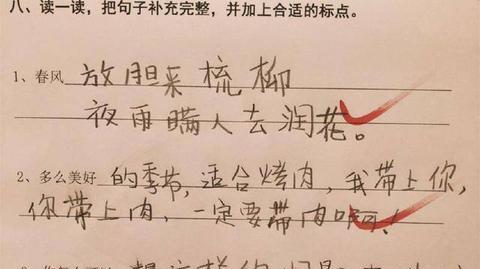 八、读一读，把句子补充完整，并加上合适的标点。
1、春风 放胆来梳柳
夜雨瞒人去润花。
2、多么美好 的季节，适合烤肉，我带上你，
你带上肉，一定要带肉啊！